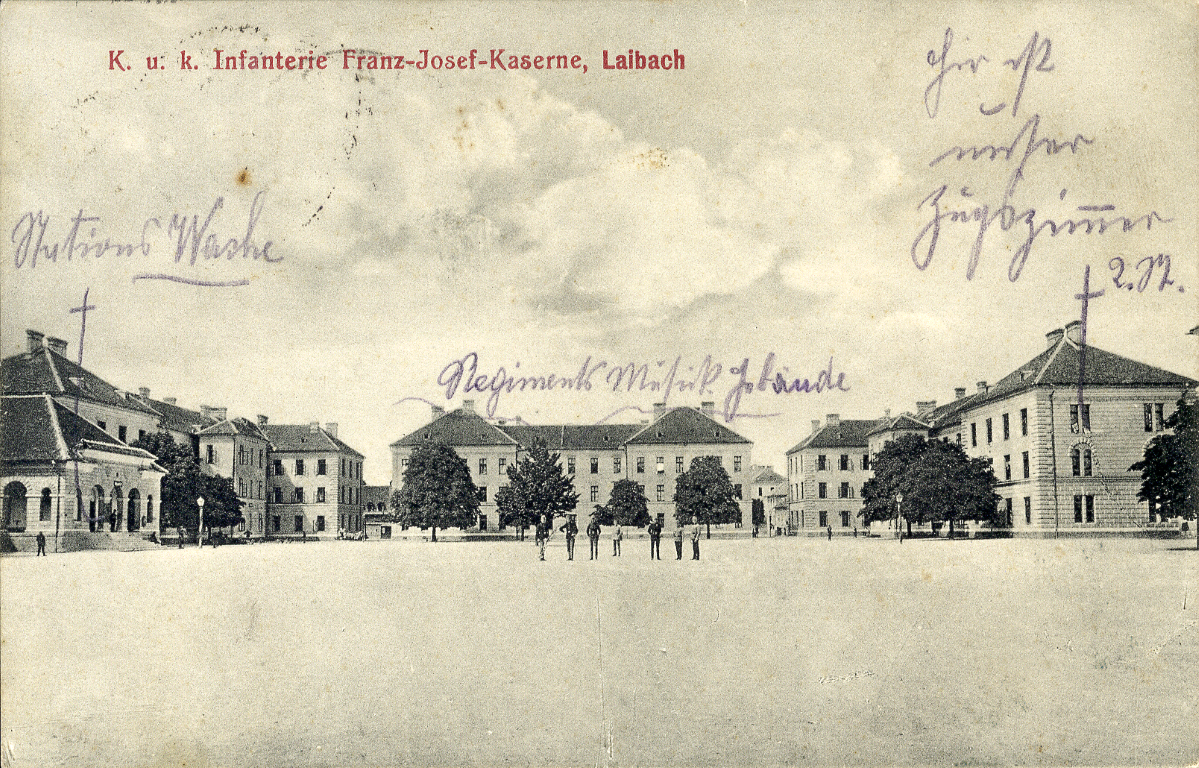 K. u. k. Infanterie Franz-Josef-Kaserne, Laibach
Hir ist
unser
Zugszimmer
2. 
Stations Wache
Regiments Musik Gebäude